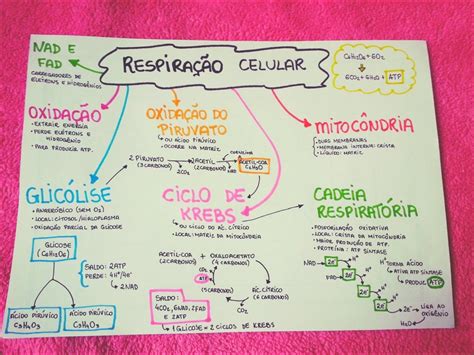 RESPIRAÇÃO CELULAR
NAD E
FAD
CARREGADORES DE
ELÉTRONS E HIDROGÊNIOS
C6H12O6 + 6O2
6CO2 + 6H2O + ATP
OXIDAÇÃO
• EXTRAIR ENERGIA
• PERDE ELÉTRONS E
HIDROGÊNIO
• PARA PRODUZIR ATP.
OXIDAÇÃO DO
PIRUVATO
• OU ÁCIDO PIRÚVICO
• OCORRE NA MATRIZ
2 PIRUVATO
(3 CARBONOS)
2CO2
2 ACETIL
(2 CARBONOS)
NAD
ACETIL-COA
MITOCÔNDRIA
• DUAS MEMBRANAS
• MEMBRANA INTERNA: CRISTA
• LÍQUIDO: MATRIZ
GLICÓLISE
• ANAERÓBICO (SEM O2)
• LOCAL: CITOSOL/HIALOPLASMA
• OXIDAÇÃO PARCIAL DA GLICOSE
GLICOSE
(C6H12O6)
SALDO: 2ATP
PERDE: 4H⁺/4e⁻
2NAD
ÁCIDO PIRÚVICO
C3H4O3
ÁCIDO PIRÚVICO
C3H4O3
CICLO DE
KREBS
• OU CICLO DO ÁC. CÍTRICO
• LOCAL: MATRIZ DA MITOCÔNDRIA
ACETIL-COA + OXALOACETATO
(2 CARBONOS) (4 CARBONOS)
CO2
ATP
ÁC. CÍTRICO
(6 CARBONOS)
CO2
SALDO:
4CO2, 6NAD, 2FAD
E 2ATP
1 GLICOSE = 2 CICLOS DE KREBS
CADEIA
RESPIRATÓRIA
• FOSFORILAÇÃO OXIDATIVA
• LOCAL: CRISTA DA MITOCÔNDRIA
• MAIOR PRODUÇÃO DE ATP.
• PROTEÍNA: ATP SINTASE
NAD
FAD
2e⁻
2e⁻
2e⁻
2e⁻
TORNA ÁCIDO
ATIVA ATP SINTASE
PRODUZ ATP
LIGA AO
OXIGÊNIO
H2O